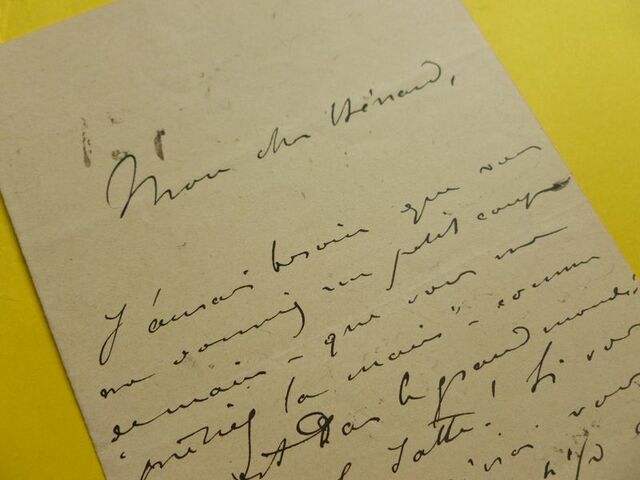 Mon cher Hénard,
J'aurais besoin que vous
me donniez un petit coup de
main - que vous me
"prêtiez la main" - comme
dans le grand monde,
! Si vous
vous
n'y a